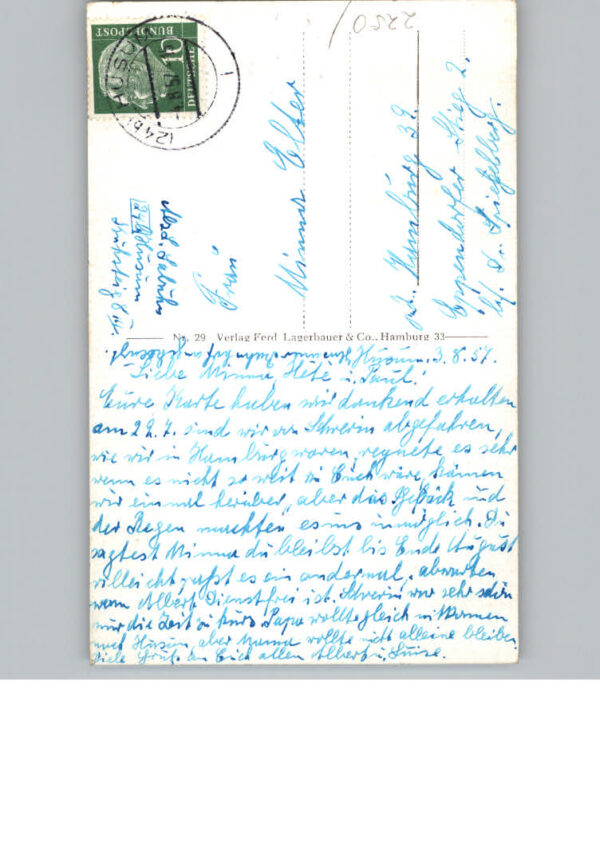 2250
DEUTSCHE
BUNDESPOST
10
(24b) HUSUM
Absd. Sebuhr
Husum
Frau
Minna Elter
Hamburg 39.
Eppendorfer Stieg 2.
b/. Dr.
Nr. 29 Verlag Ferd. Lagerbauer & Co., Hamburg 33
Husum, 3.8.57.
Liebe Minna, Hete u. Paul!
Eure Karte haben wir dankend erhalten
am 22.7. sind wir von Schwerin abgefahren,
wie wir in Hamburg waren, regnete es sehr
wenn es nicht so weit zu Euch wäre, kämen
wir einmal herüber, aber das Gepäck und
der Regen machten es uns unmöglich. Du
sagtest Minna du bleibst bis Ende August
vielleicht paßt es ein andermal, abwarten
wenn Albert Dienstfrei ist. Schwerin war sehr schön
nur die Zeit zu kurz. Papa wollte gleich mitkommen
nach Husum, aber Mama wollte nicht alleine bleiben.
Viele Grüße an Euch allen Albert u. Luise.